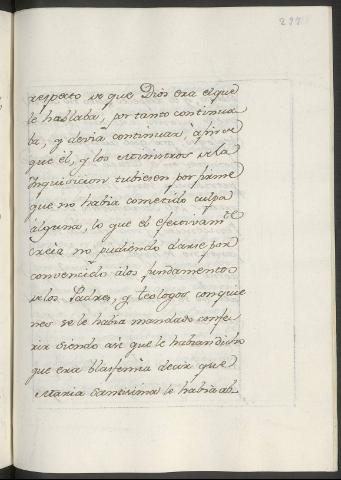 297
respecto de que Dios era el que
le hablaba, por tanto continua
ba, y devia continuar, a fin de
que él, y los Ministros de la
Inquisicion tubiesen por firme
que no habia cometido culpa
alguna, lo que el efectivamte
creia no pudiendo darse por
convencido a los fundamentos
de los Padres, y teologos con quie
nes se le habia mandado confe
rir siendo asi que le habian dicho
que era blasfemia decir que
Maria Santisima le habia ab